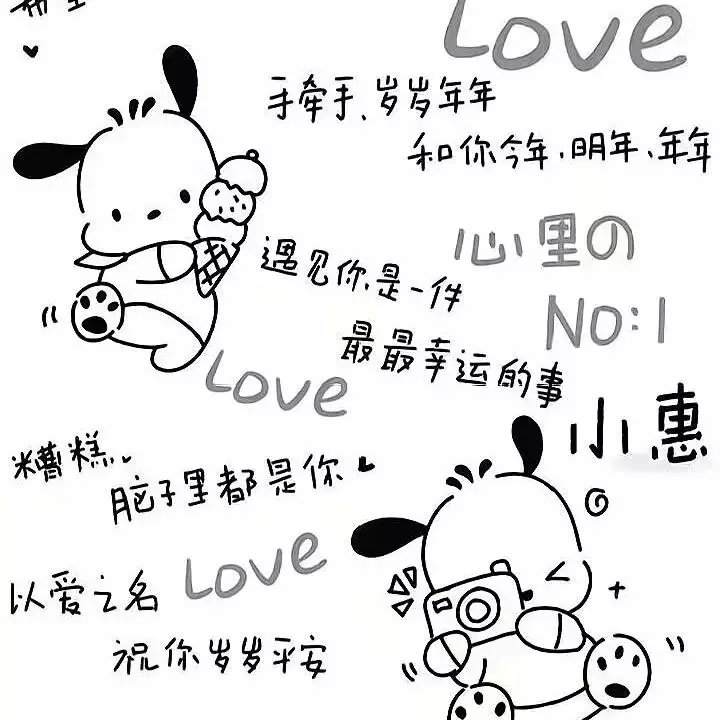 Love
手牵手、岁岁年年
和你今年、明年、年年
心里の
NO:1
遇见你,是一件
最最幸运的事
Love
小惠
糟糕、
脑子里都是你
Love
以爱之名
祝你岁岁平安